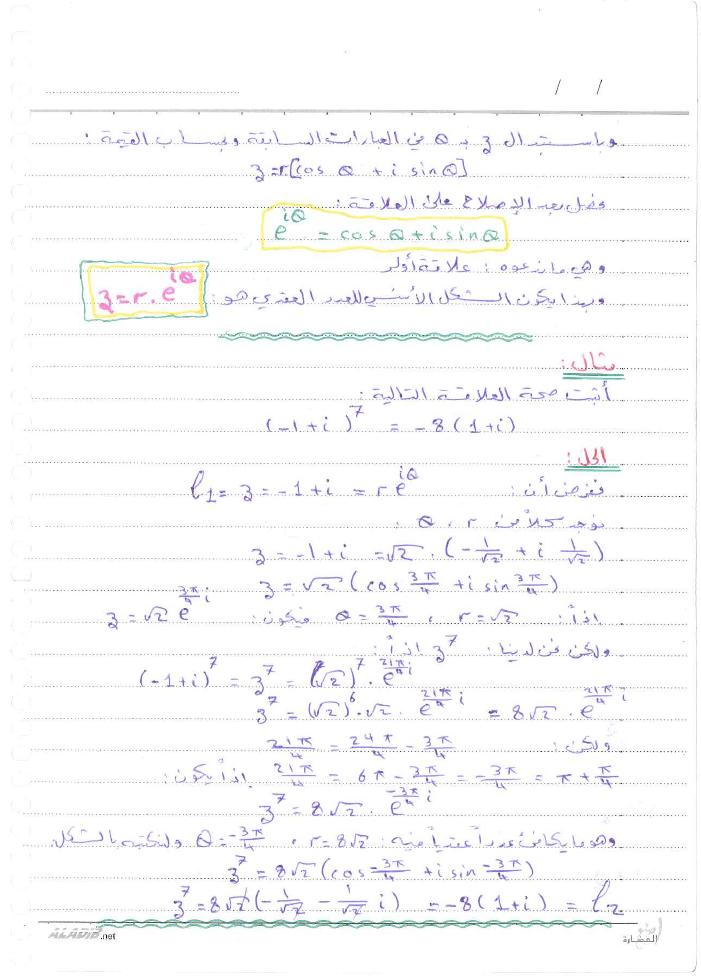 / /
وباستبدال z بـ θ في العبارات السابقة وبحساب القيمة :
z=r[cos θ + i sin θ]
نصل بعد الإصلاح على العلاقة :
e^{iθ} = cos θ + i sin θ
وهي ما ندعوه : علاقة أولر
وبهذا يكون الشكل الأسّي للعدد العقدي هو : z=r.e^{iθ}
مثال :
أثبت صحة العلاقة التالية :
(-1+i)^7 = -8(1+i)
الحل :
نفرض أن : l_1 = z = -1+i = r e^{iθ}
نوجد كلاً من r ، θ .
z = -1+i = √2 . (-1/√2 + i 1/√2)
z = √2 (cos 3π/4 + i sin 3π/4)
إذاً : r=√2 ، θ = 3π/4 فيكون : z = √2 e^{3π/4 i}
ولكن من لدينا z^7 إذاً :
(-1+i)^7 = z^7 = (√2)^7 . e^{21π/4 i}
z^7 = (√2)^6 . √2 . e^{21π/4 i} = 8√2 . e^{21π/4 i}
ولكن : 21π/4 = 24π/4 - 3π/4
21π/4 = 6π - 3π/4 = -3π/4 = π + π/4 إذاً يكون :
z^7 = 8√2 . e^{-3π/4 i}
وهو ما يكافئ عدداً عقدياً فيه : r=8√2 ، θ = -3π/4 ولنكتبه بالشكل
z^7 = 8√2 (cos -3π/4 + i sin -3π/4)
z^7 = 8√2 (-1/√2 - 1/√2 i) = -8(1+i) = l_2
ALADIB.net
الحضارة